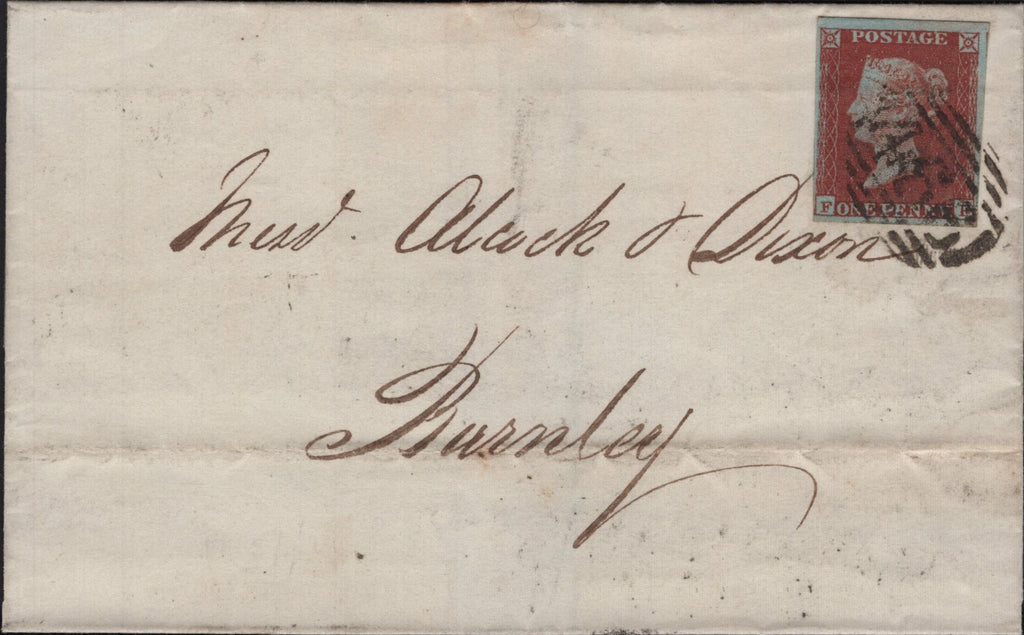 POSTAGE
F ONE PENNY
Messrs. Alcock & Dixon
Burnley